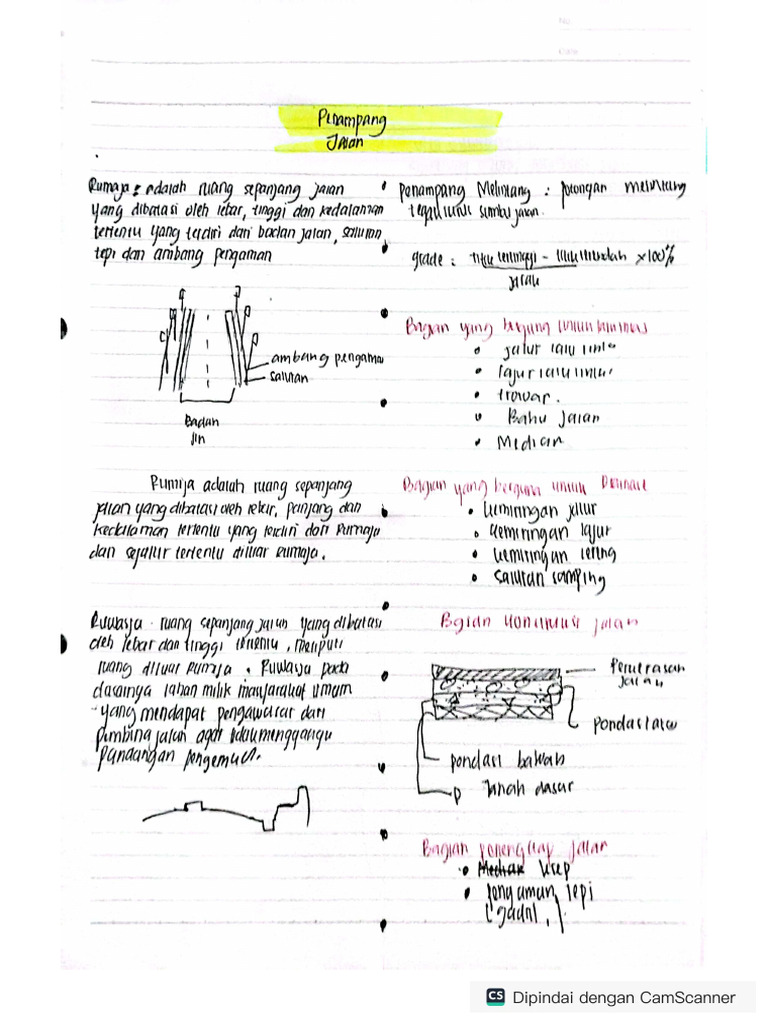 Penampang
Jalan
Rumaja : adalah ruang sepanjang jalan
yang dibatasi oleh lebar, tinggi dan kedalaman
tertentu yang terdiri dari badan jalan, saluran
tepi dan ambang pengaman
ambang pengama
saluran
Badan
jln
Rumija adalah ruang sepanjang
jalan yang dibatasi oleh lebar, panjang dan
kedalaman tertentu yang terdiri dari Rumaja
dan sejalur tertentu diluar Rumaja.
Ruwasja ruang sepanjang jalan yang dibatasi
oleh lebar dan tinggi tertentu, meliputi
ruang diluar Rumija. Ruwasja pada
dasarnya lahan milik masyarakat umum
yang mendapat pengawasan dari
pembina jalan agar tidak mengganggu
pandangan pengemudi.
Penampang Melintang : potongan melintang
tegak lurus sumbu jalan.
grade : titik tertinggi - titik terendah x100%
jarak
Bagian yang berguna untuk lalulintas
jalur lalu lintas
lajur lalu lintas
trotoar.
Bahu jalan
Median
Bagian yang berguna untuk Drainase
kemiringan jalur
kemiringan lajur
kemiringan lereng
saluran samping
Bagian konstruksi jalan
Perkerasan
jalan
pondasi atas
pondasi bawah
Tanah dasar
Bagian pelengkap jalan
kerep
pengaman tepi
Dipindai dengan CamScanner